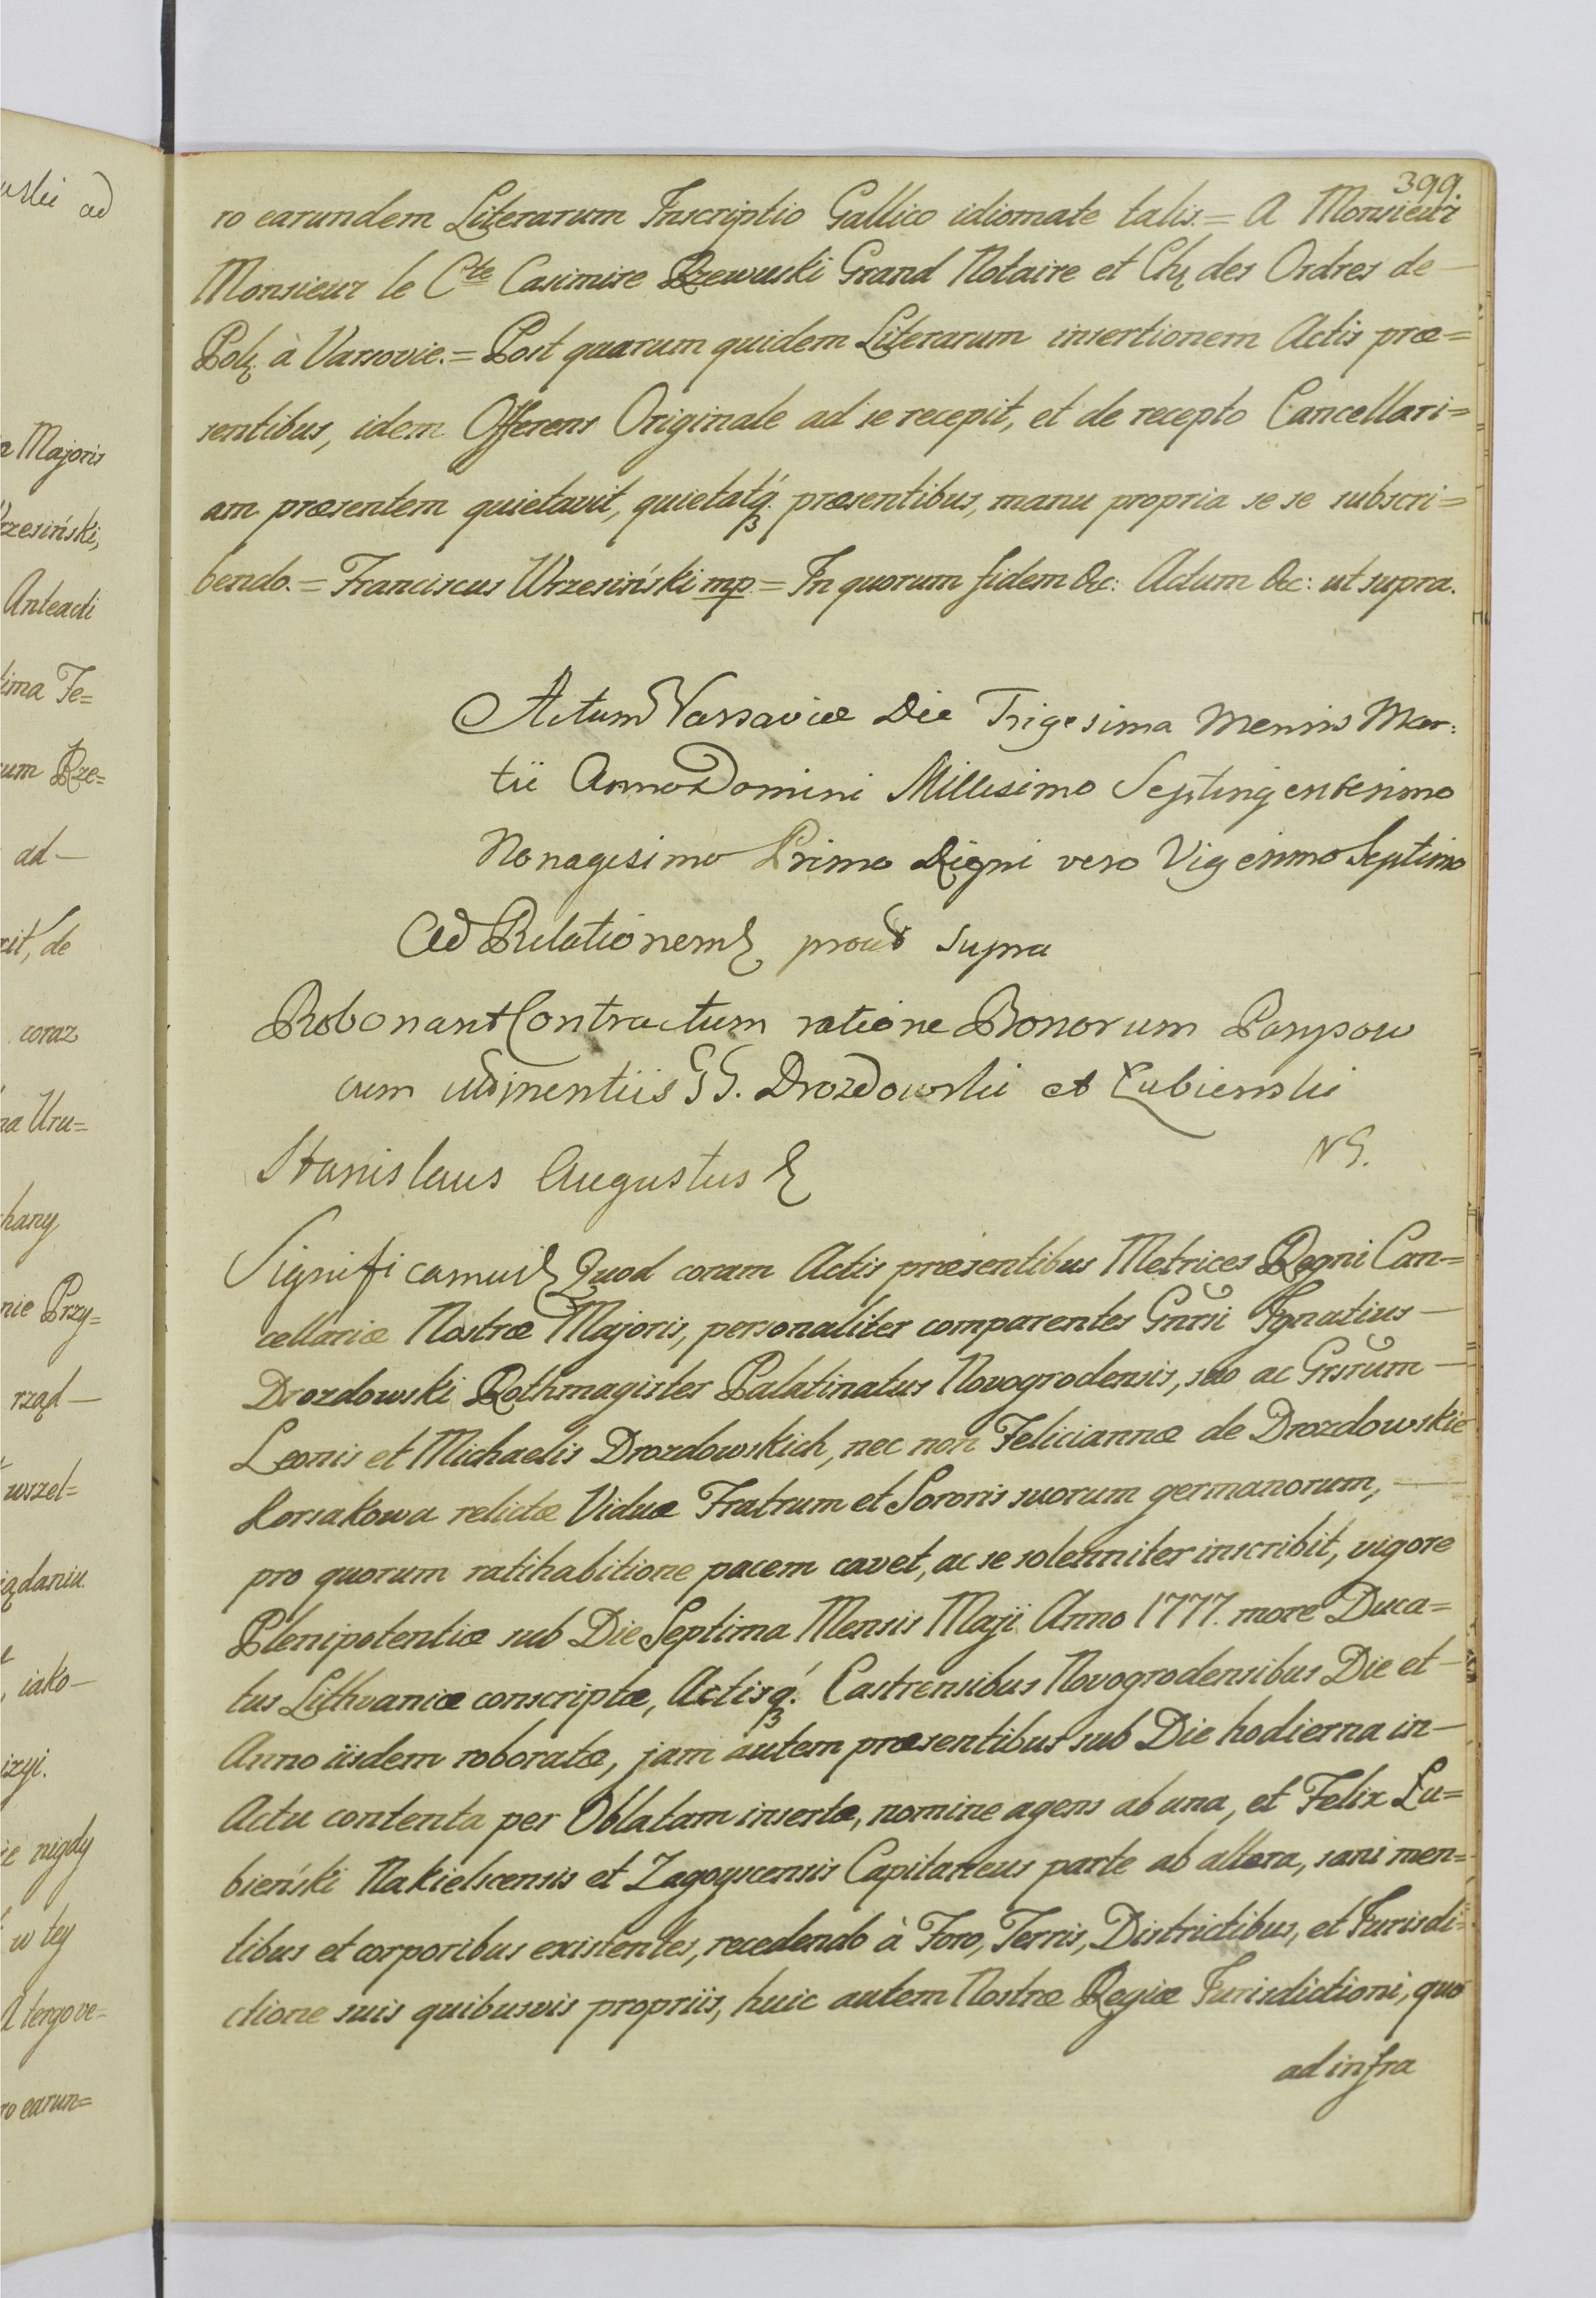 uslii ad
n Majoris
rzesiński,
Anteacti
tima Fe=
um Rze=
ad—
rit, de
coraz
na Uru=
hany
nie Przy=
rząd—
wszel=
iądaniu
, iako—
izyi.
ie nigdy
w tey
A tergo ve=
ro earun=
399.
ro earundem Literarum Inscriptio Gallico idiomate talis.= A Monsieur
Monsieur le Cte Casimire Rzewuski Grand Notaire et Ch: des Ordres de—
Pol: à Varsovie.= Post quarum quidem Literarum insertionem Actis præ=
sentibus, idem Offerens Originale ad se recepit, et de recepto Cancellari=
am præsentem quietavit, quietatq́; præsentibus, manu propria se se subscri=
bendo.= Franciscus Wrzesiński mp.= In quorum fidem &c: Actum &c: ut supra.
Actum Varsaviæ Die Trigesima Mensis Mar:
tii Anno Domini Millesimo Septingentesimo
Nonagesimo Primo Regni vero Vigesimo Septimo
Ad Relationem prout supra
Robonant Contractum ratione Bonorum Porypow
cum attinentiis GG. Drozdowslii et Łubienslii
NG.
Stanislaus Augustus
Significamus Quod coram Actis præsentibus Metrices Regni Can=
cellariæ Nostræ Majoris, personaliter comparentes Gnrsi Ignatius—
Drozdowski Rothmagister Palatinatus Novogrodensis, suo ac Grsrum—
Leonis et Michaelis Drozdowskich, nec non Feliciannæ de Drozdowskie
Korsakowa relictæ Viduæ Fratrum et Sororis suorum germanorum,—
pro quorum ratihabitione pacem cavet, ac se solenniter inscribit, vigore
Plenipotentiæ sub Die Septima Mensis Maji Anno 1777. more Duca=
tus Lithvaniæ conscriptæ, Actisq́; Castrensibus Novogrodensibus Die et—
Anno iisdem roboratæ, jam autem præsentibus sub Die hodierna in—
Actu contenta per Oblatam insertæ, nomine agens ab una, et Felix Łu=
bieński Nakielscensis et Zagoyscensis Capitaneus parte ab altera, sani men=
tibus et corporibus existentes, recedendo à Foro, Terris, Districtibus, et Jurisdi=
ctione suis quibusvis propriis, huic autem Nostræ Regiæ Jurisdictioni, quo
ad infra